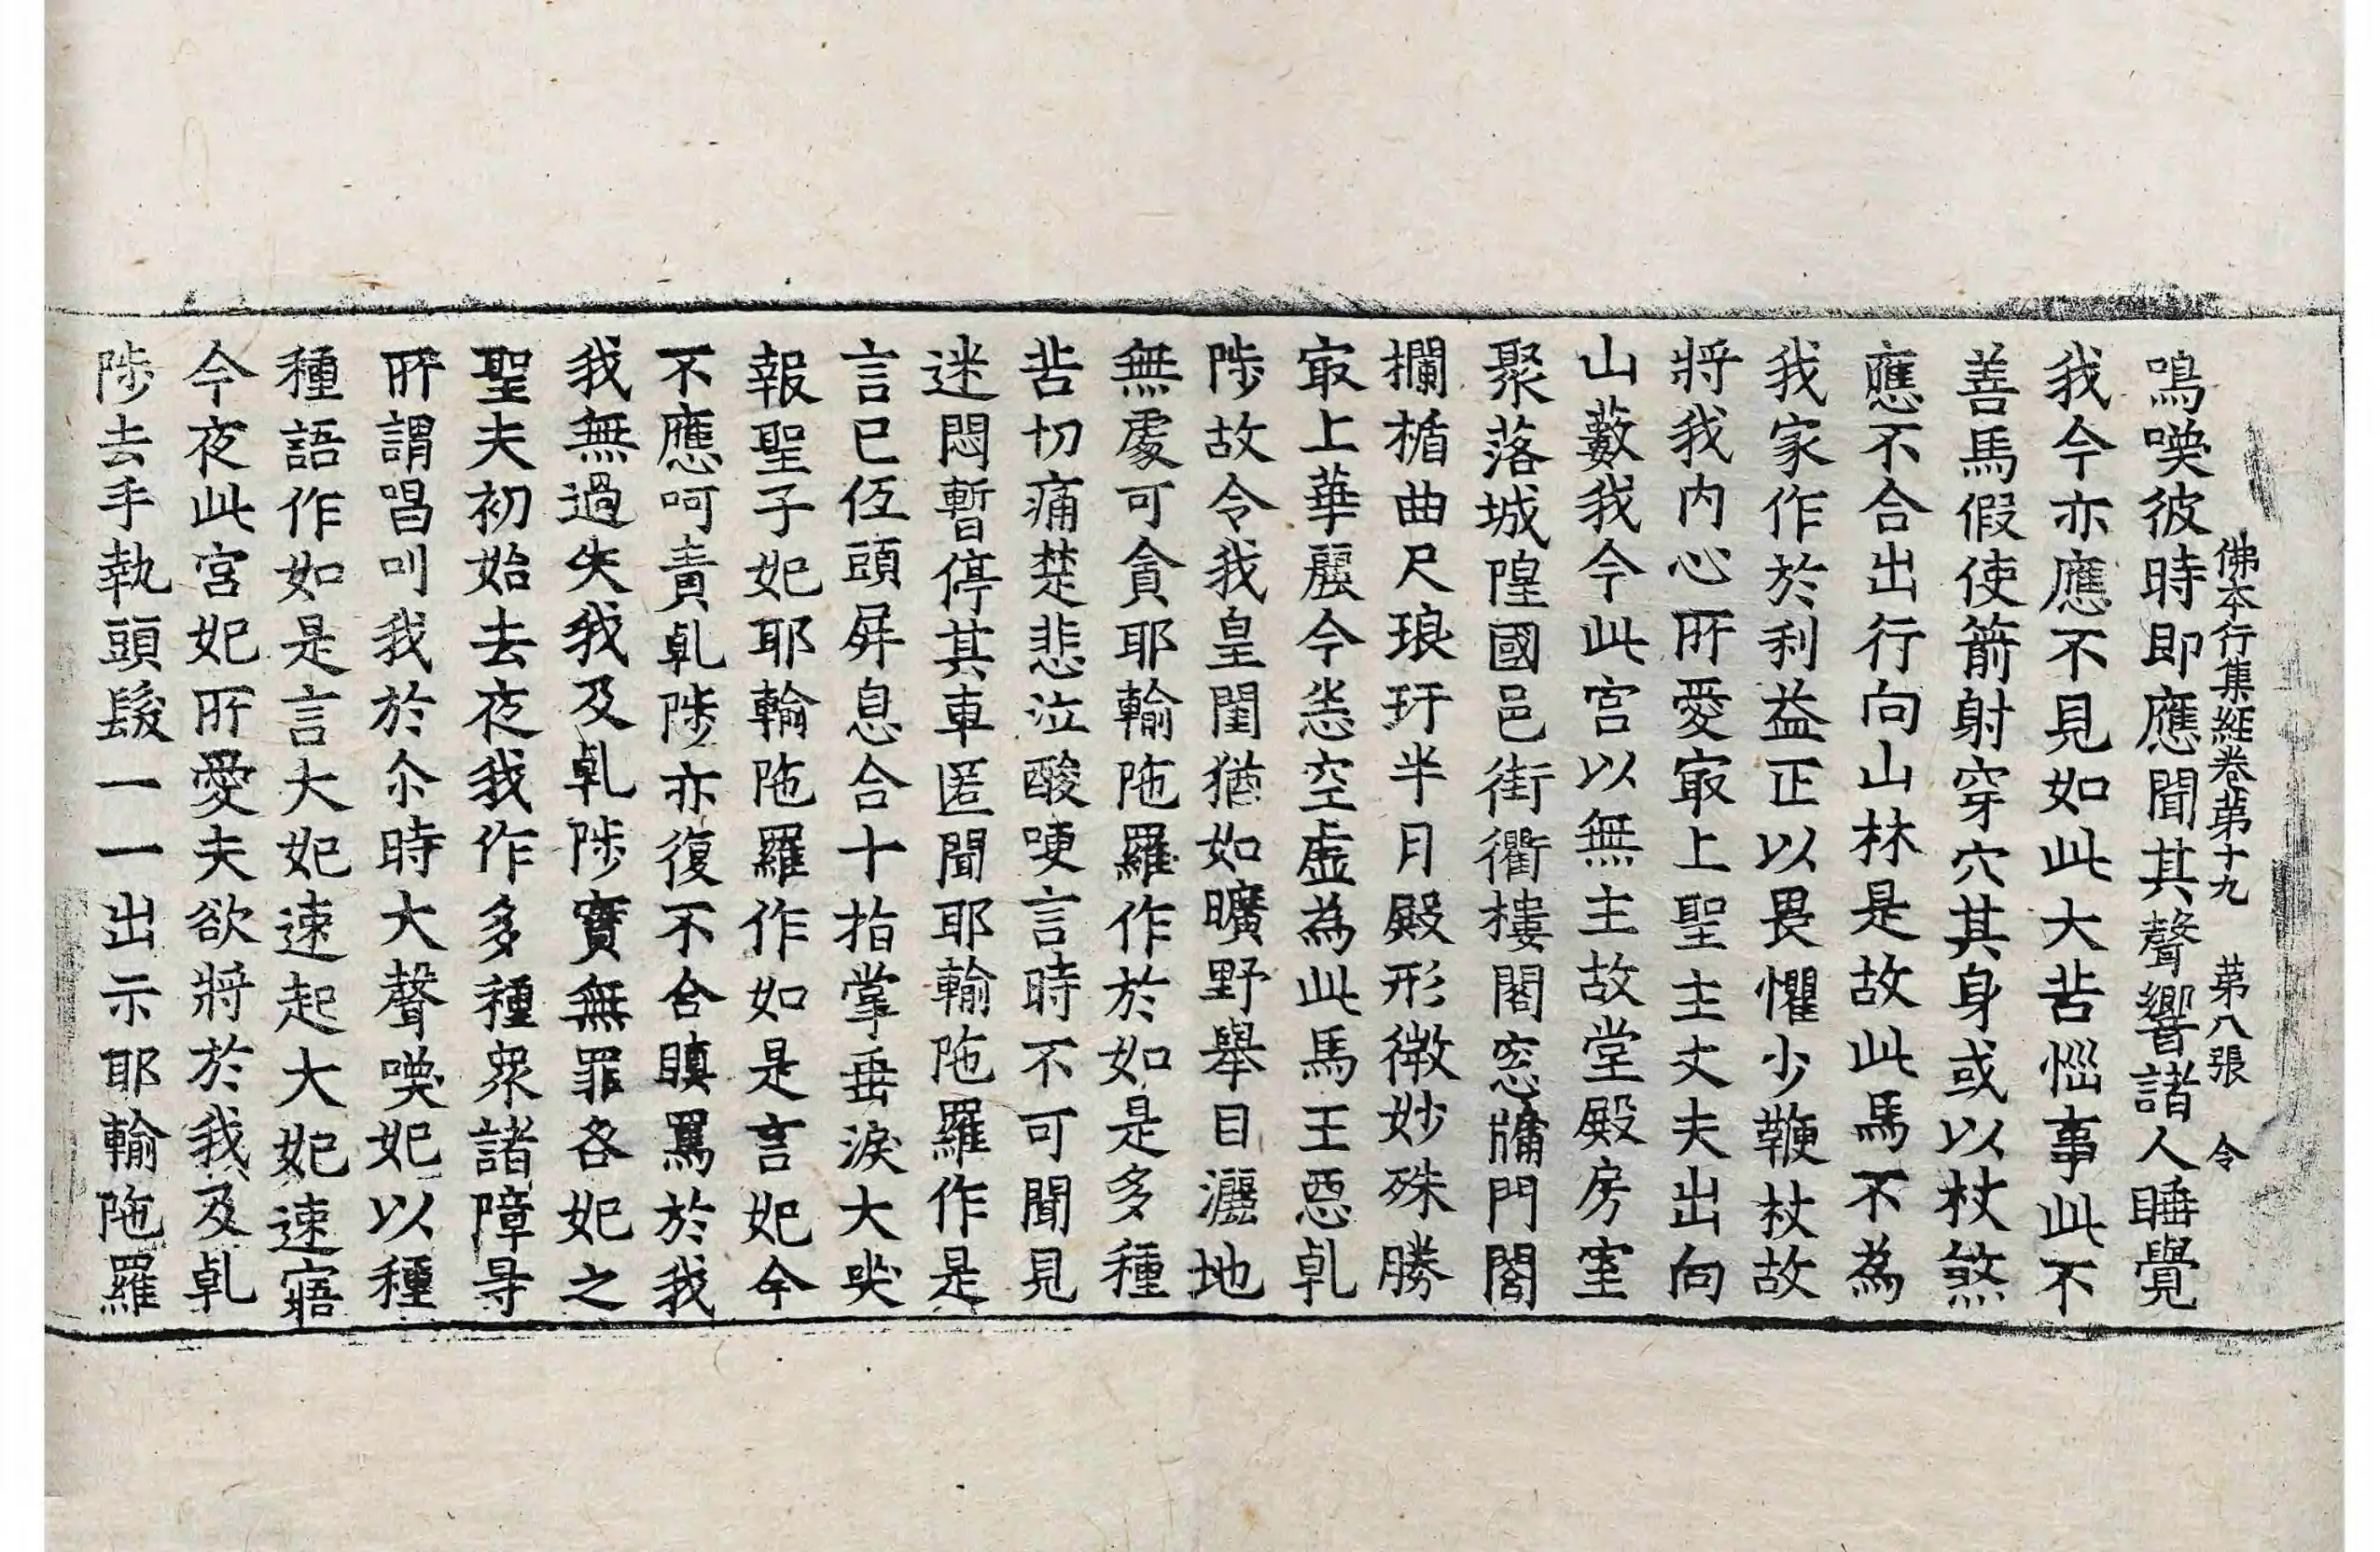 佛本行集經卷第十九　第八張　令
鳴喚彼時即應聞其聲響諸人睡覺
我今亦應不見如此大苦惱事此不
善馬假使箭射穿穴其身或以杖煞
應不合出行向山林是故此馬不為
我家作於利益正以畏懼少鞭杖故
將我內心所愛冣上聖主丈夫出向
山藪我今此宮以無主故堂殿房室
聚落城隍國邑街衢樓閣窓牖門閤
攔楯曲尺琅玕半月殿形微妙殊勝
冣上華麗今悉空虛為此馬王惡乹
陟故令我皇閨猶如曠野舉目灑地
無處可貪耶輸陁羅作於如是多種
苦切痛楚悲泣酸哽言時不可聞見
迷悶暫停其車匿聞耶輸陁羅作是
言已伍頭屏息合十指掌垂淚大哭
報聖子妃耶輸陁羅作如是言妃今
不應呵責乹陟亦復不合瞋罵於我
我無過失我及乹陟實無罪咎妃之
聖夫初始去夜我作多種衆諸障㝵
所謂唱叫我於尒時大聲喚妃以種
種語作如是言大妃速起大妃速寤
今夜此宮妃所愛夫欲將於我及乹
陟去手執頭髮一一出示耶輸陁羅